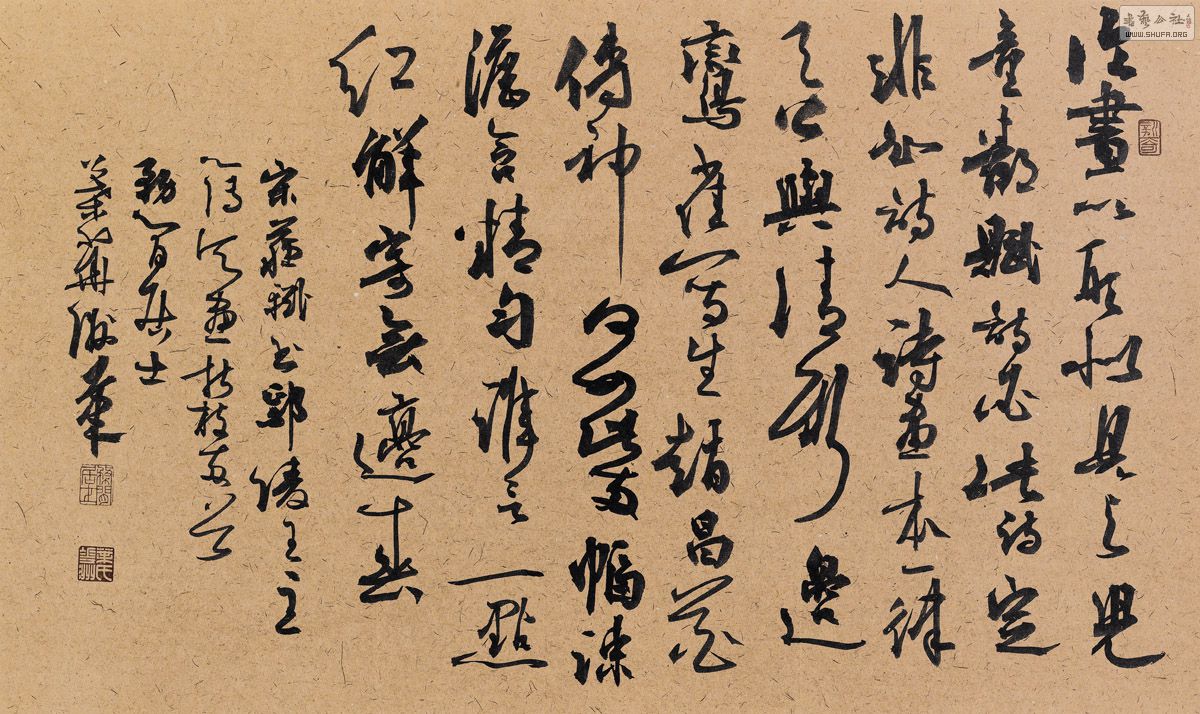 論畫以形似見与兒
童鄰賦詩必此詩定
非知詩人詩畫本一律
天工與清新邊
鸞雀寫生趙昌花
傳神何如此两幅疎
澹含精匀誰言一點
紅解寄無邊春
宋蘇軾書鄢陵王主
畫折枝
居士
書藝公社
WWW.SHUFA.ORG